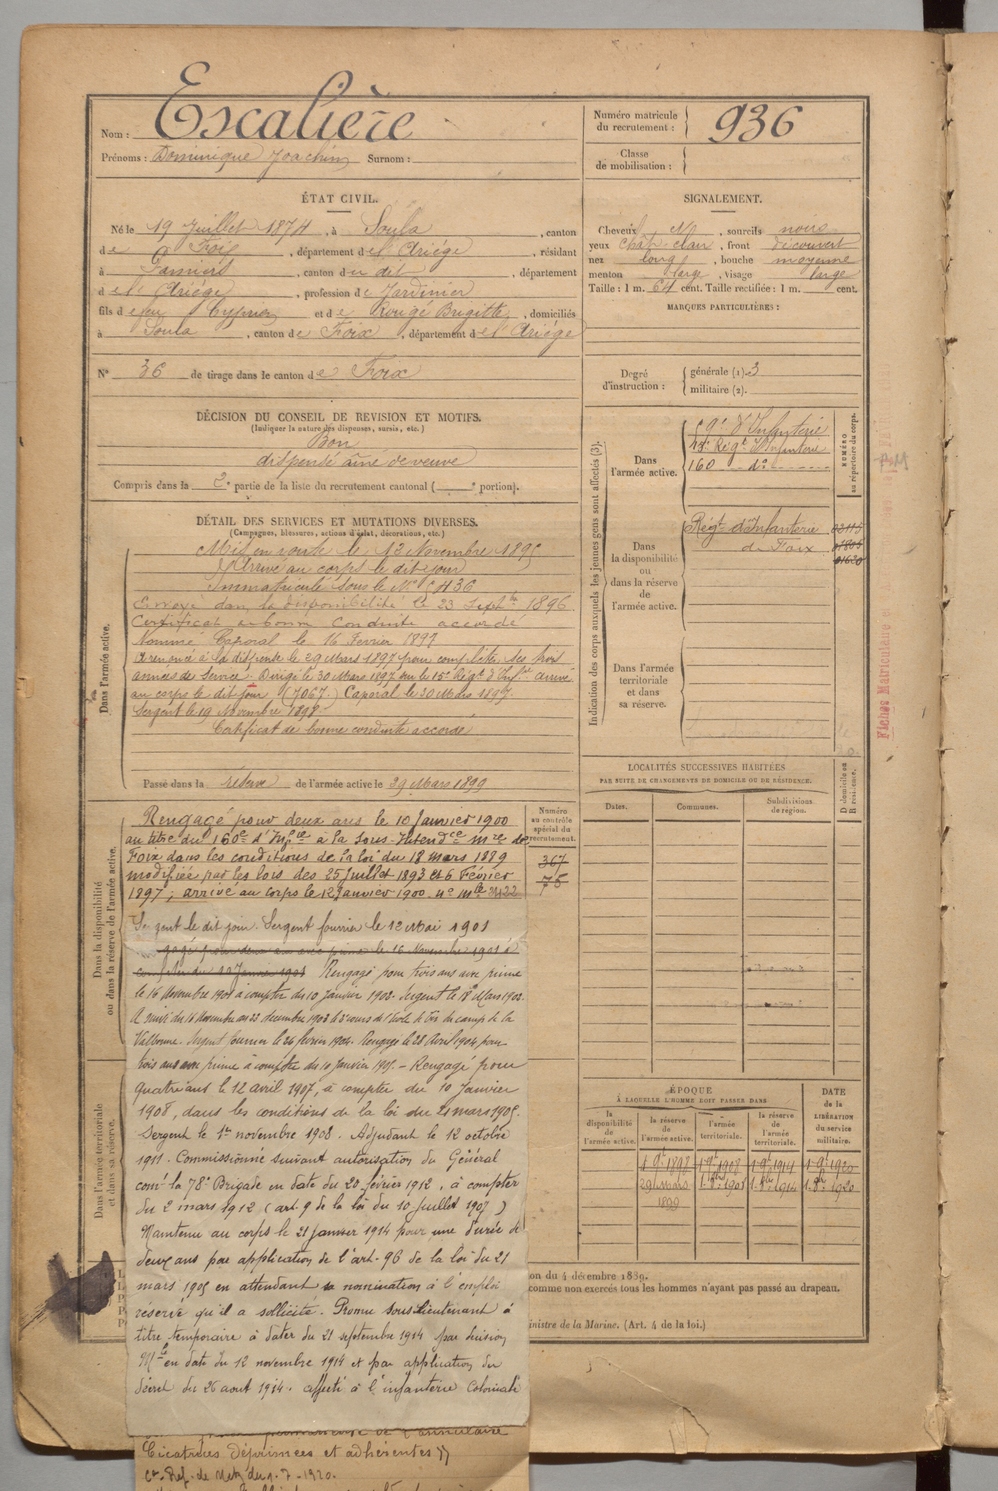 Nom : Escalière
Prénoms : Dominique Joachim Surnom :
Numéro matricule du recrutement : 936
Classe de mobilisation :
ÉTAT CIVIL.
Né le 19 Juillet 1874, à Soula, canton
de Foix, département de l'Ariége, résidant
à Pamiers, canton du dit, département
de l'Ariége, profession de Jardinier
fils de feu Cyprien et de Rougé Brigitte, domiciliés
à Soula, canton de Foix, département de l'Ariége
N° 36 de tirage dans le canton de Foix
SIGNALEMENT.
Cheveux, sourcils noirs
yeux chat. clair, front découvert
nez long, bouche moyenne
menton large, visage large
Taille : 1 m. 64 cent. Taille rectifiée : 1 m. cent.
MARQUES PARTICULIÈRES :
Degré d'instruction : générale (1). 3
militaire (2).
DÉCISION DU CONSEIL DE REVISION ET MOTIFS.
(Indiquer la nature des dispenses, sursis, etc.)
Bon
dispensé aîné de veuve
Compris dans la 2e partie de la liste du recrutement cantonal ( e portion).
DÉTAIL DES SERVICES ET MUTATIONS DIVERSES.
(Campagnes, blessures, actions d'éclat, décorations, etc.)
Dans l'armée active.
Mis en route le 13 Novembre 1895
Arrivé au corps le dit jour
Immatriculé sous le N°
Envoyé dans la disponibilité le 23 Septbre 1896
Certificat de bonne conduite accordé
Nommé Caporal le 16 Fevrier 1897
A renoncé à la dispense le 29 Mars 1897 pour compléter ses trois
années de service. Dirigé le 30 Mars 1897 sur le 15e Régt d'Infie arrivé
au corps le dit jour (7067) Caporal le 30 Mars 1897
Sergent le 19 Novembre 1898
Certificat de bonne conduite accordé
Passé dans la réserve de l'armée active le 29 Mars 1899
Indication des corps auxquels les jeunes gens sont affectés (3).
Dans l'armée active.
59e d'Infanterie
Régt d'Infanterie
160 - do
NUMÉRO au répertoire du corps.
Dans la disponibilité ou dans la réserve de l'armée active.
Régt d'Infanterie
de Foix
Dans l'armée territoriale et dans sa réserve.
Fiches Matricules
LOCALITÉS SUCCESSIVES HABITÉES
PAR SUITE DE CHANGEMENTS DE DOMICILE OU DE RÉSIDENCE.
Dates. Communes. Subdivisions de région.
D domicile ou R résidence.
Dans la disponibilité ou dans la réserve de l'armée active.
Numéro au contrôle spécial du recrutement.
367
75
Rengagé pour deux ans le 10 Janvier 1900
au titre du 160e d'Infie à la Sous-Intendce mre de
Foix dans les conditions de la loi du 18 mars 1889
modifiée par les lois des 25 Juillet 1893 et 6 Février
1897 ; arrivé au corps le 12 Janvier 1900. no mle
Sergent le dit jour. Sergent fourrier le 12 Mai 1901
le 16 Novembre 1901 à
compter du 10 Janvier 1903 Rengagé pour trois ans avec prime
le 16 Novembre 1901 à compter du 10 Janvier 1902. Sergent le Mars 1902.
A suivi du 16 Novembre au 22 décembre 1903 le cours de l'école de Tir du camp de la
Valbonne. Sergent fourrier le 26 février 1904. Rengagé le 28 Avril 1904 pour
trois ans avec prime à compter du 10 Janvier 1905. - Rengagé pour
quatre ans le 12 avril 1907, à compter du 10 Janvier
1908, dans les conditions de la loi du 21 mars 1905.
Sergent le 1er novembre 1908. Adjudant le 12 octobre
1911. Commissionné suivant autorisation du Général
comt la 78e Brigade en date du 20 février 1912, à compter
du 2 mars 1912 (art. 9 de la loi du 10 Juillet 1907)
Maintenu au corps le 21 Janvier 1914 pour une durée de
deux ans par application de l'art. 96 de la loi du 21
mars 1905 en attendant sa nomination à l'emploi
réservé qu'il a sollicité. Promu sous lieutenant à
titre temporaire à dater du 21 septembre 1914 par décision
Mlle en date du 12 novembre 1914 et par application du
décret du 26 aout 1914. affecté à l'infanterie Coloniale
Dans l'armée territoriale et dans sa réserve.
ÉPOQUE
À LAQUELLE L'HOMME DOIT PASSER DANS
la disponibilité de l'armée active. la réserve de l'armée active. l'armée territoriale. la réserve de l'armée territoriale.
DATE de la LIBÉRATION du service militaire.
1 9e 1898 1 9e 1914 1 9e 1920
29 mars 1899
on du 4 décembre 1889.
comme non exercés tous les hommes n'ayant pas passé au drapeau.
inistre de la Marine. (Art. 4 de la loi.)
de l'annulaire
Cicatrices déprimées et adhérentes »
Con Ref. de Metz du 1-7-1920.